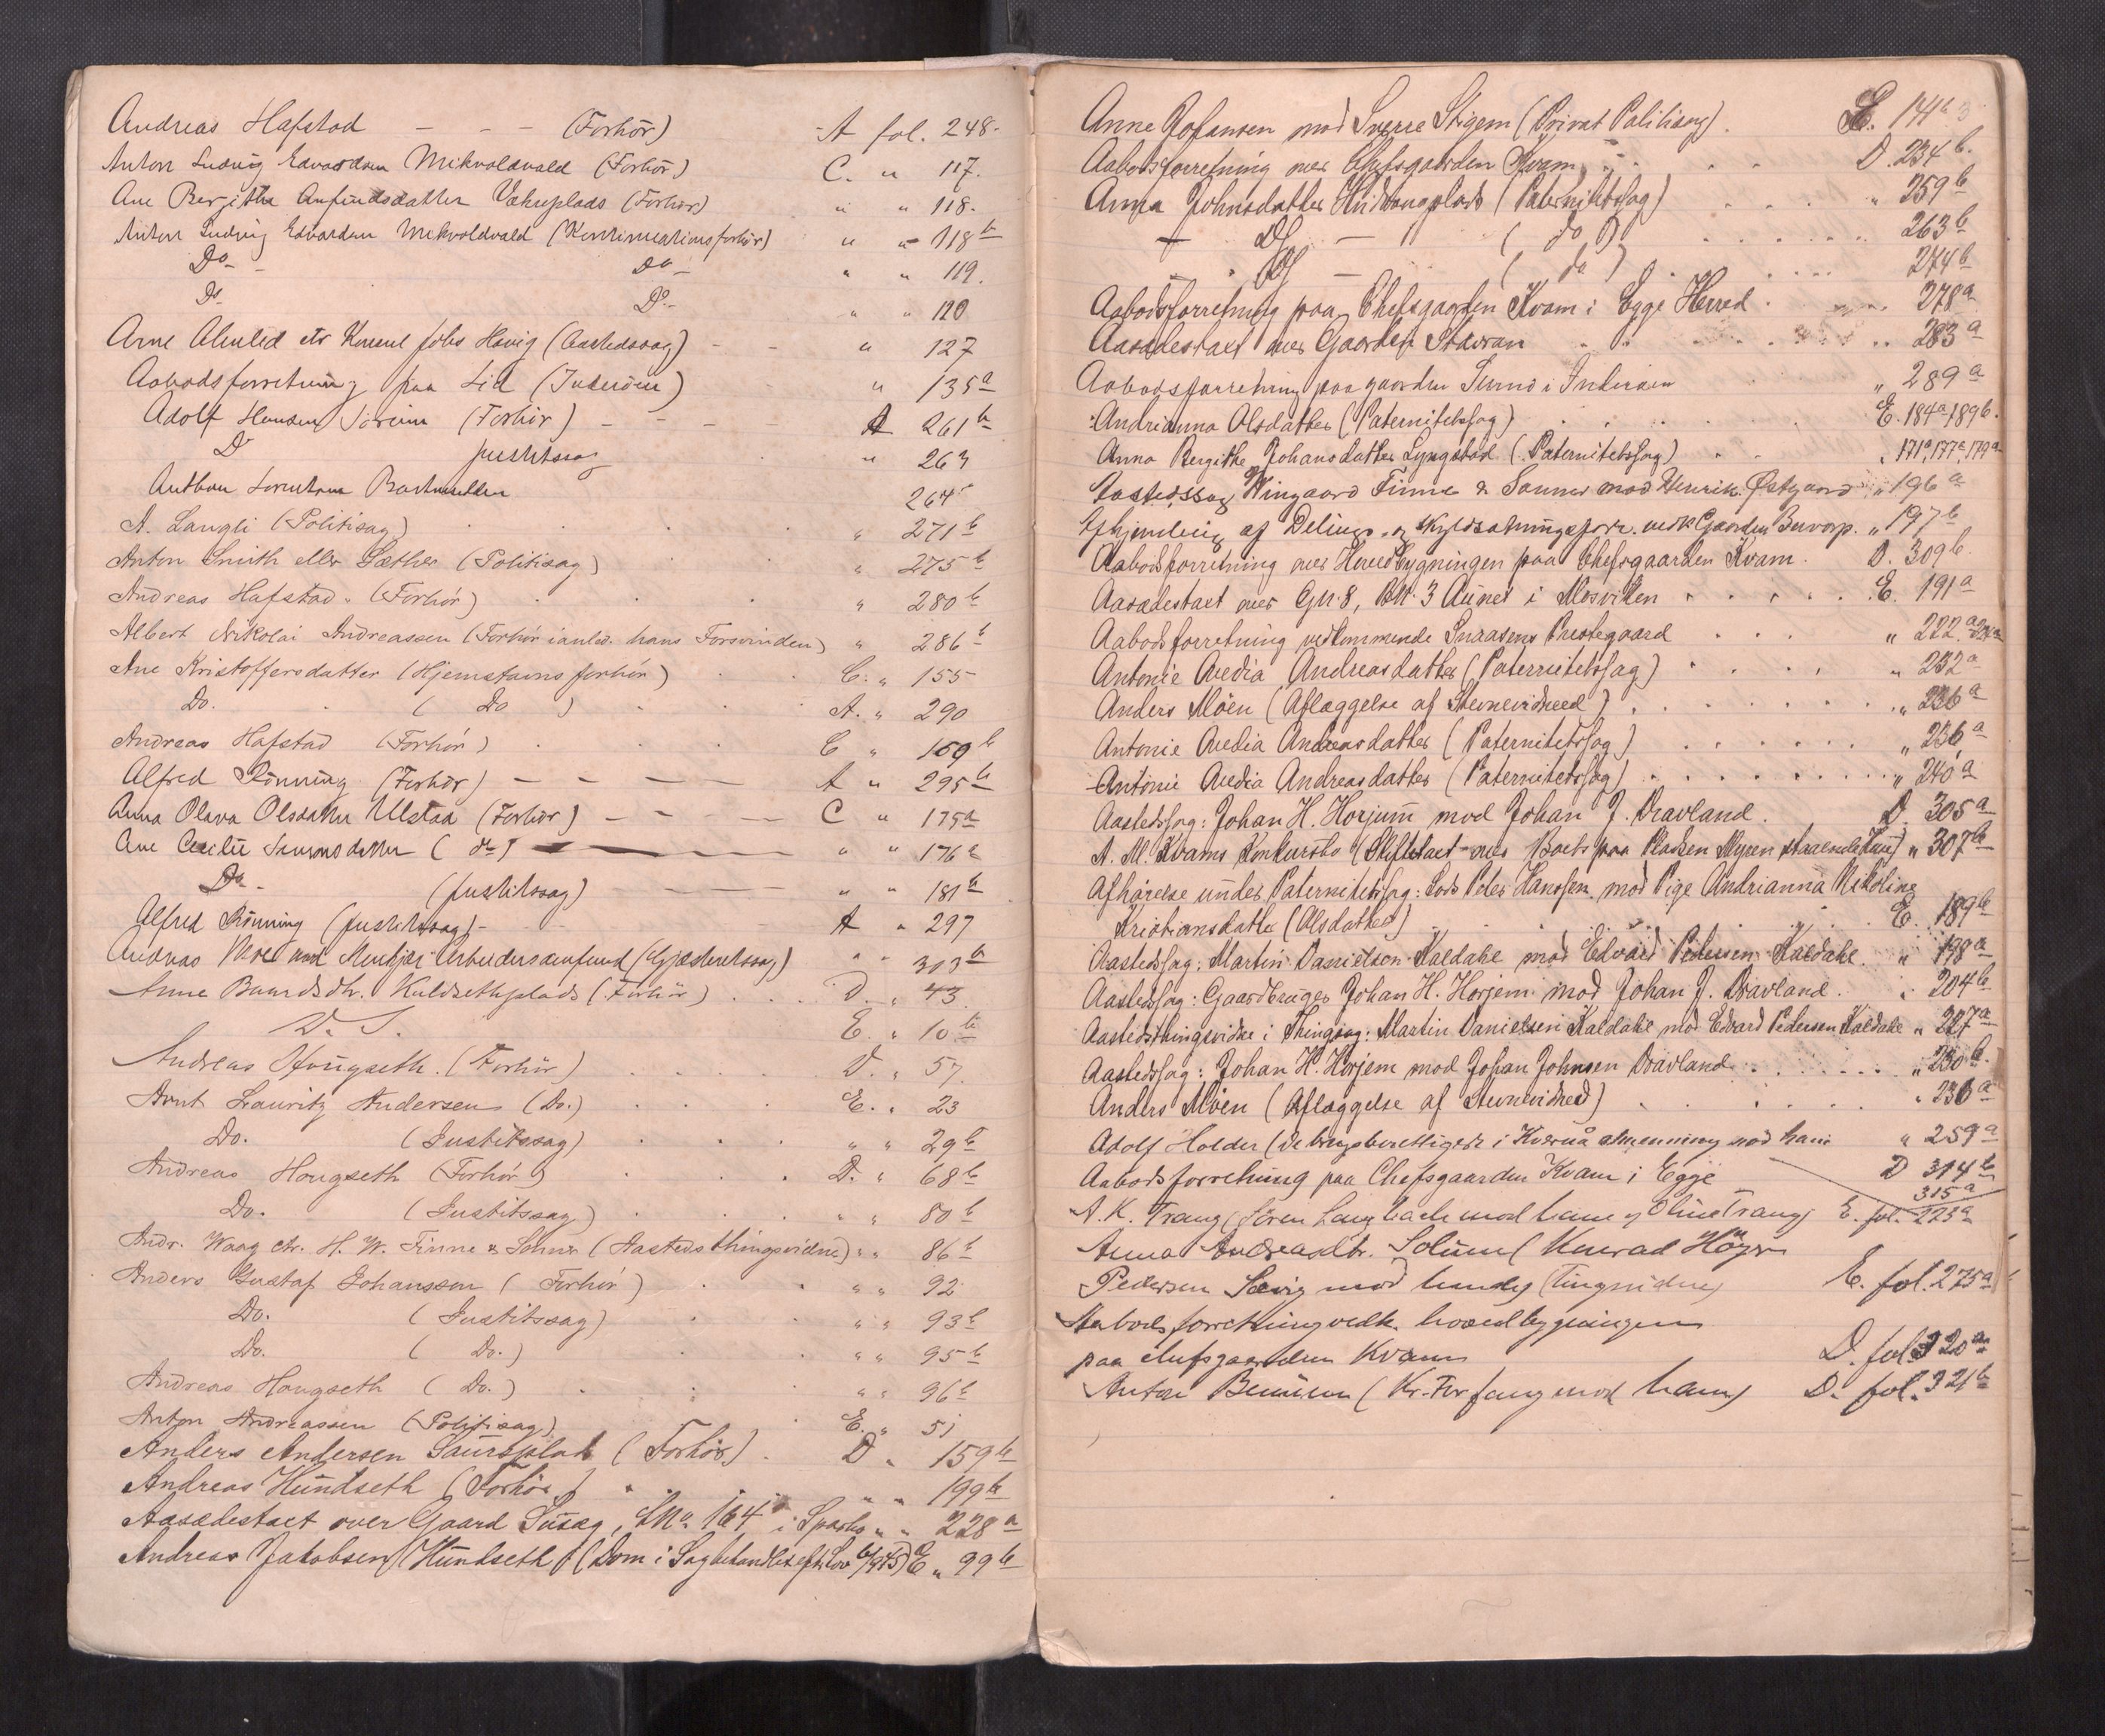 Andreas Hafstad — - - (Forhör) A fol. 248.
Anton Ludvig Edvardsen Mikvoldvald (Forhör) C. " 117.
Ane Bergitha Anfindsdatter Vahuplads (Forhör) " " 118.
Anton Ludvig Edvardsen Mikvoldvald (Kontinuationsforhör) " " 118 b
Do - Do - " " 119.
Do Do - " " 120
Arne Aluled ctr Konsul Jobs Havig (Aastedssag) - - " 127
Aabodsforretning paa Lid (Inderöen) " 135 a
Adolf Hansen Sörum (Forhör) - - - - A 261 b
Do justitssag " 263
Anthon Lorentsen 264
A. Langli (Politisag) " 271 b
Anton Smith eller Sæther (Politisag) " 275 b
Andreas Hafstad. (Forhör) " 280 b
Albert Nikolai Andreassen (Forhör i anled. hans Forsvinden) " 286 b
Ane Kristoffersdatter (Hjemstavnsforhör) C. " 155
Do. ( Do ) A. " 290
Andreas Hafstad (Forhör) C " 159 b
Alfred Rönning (Forhör) — — — — A " 295 b
Anna Olava Olsdatter Ulstad (Forhör) — — — C " 175 a
Ane Cecilie Simonsdatter ( do ) — " " 176 a
Do - (justitssag) — — — " " 181 b
Alfred Rönning (justitssag) - A " 297
Andreas Moe mod Stenkjær Arbeidersamfund (Gjæsteretssag) " " 303 b
Anne Baardsdtr. Kuldsethplads (Forhör) . . . D. " 43.
D. S. E. " 10 b
Andreas Hougseth. (Forhör) . . . . D. " 57.
Arnt Lauritz Andersen (Do.) . . . E. " 23
Do. (Justitssag) . . . " " 29 b
Andreas Hougseth (Forhör) . . . D. " 68 b
Do. (Justitssag) . . . " " 80 b
Andr. Waag ctr. H. W. Finne & Sönner (Aastedsthingsvidne) " " 86 b
Anders Gustaf Johansson ( Forhör ) . . " " 92
Do. (Justitssag) . . " " 93 b
Do. ( Do. ) . . " " 95 b
Andreas Hougseth ( Do. ) . . . " " 96 b
Anton Andreassen (Politisag) . E. " 51
Anders Andersen Saursplads (Forhör) . D " 159 b
Andreas Hundseth (Forhör) . . " " 199 b
Aasædestaxt over Gaard Susæg, LNo 164 i Sparbo " " 228 a
Andreas Jakobsen Hundseth (Dom i Sag behandlet efter Lov) E " 99 b
Anne Johansen mod Sverre Stigem (Privat Politisag). E. 141 b
Aabodsforretning over Chefsgaarden Kvam . . . D. 234 b.
Anna Johnsdatter Hvidsandplads (Paternitetssag) . . . " 259 b
— Ds — ( do ) . . . . . 263 b
" Ds — ( do ) . . . . 274 b
Aabodsforretning paa Chefsgaarden Kvam i Egge Herred . " 278 a
Aasædestaxt over Gaarden Stavran . . . . 283 a
Aabodsforretning paa gaarden Sund i Inderöen " 289 a
Andrianna Olsdatter (Paternitetssag) . . . . E. 184 a, 189 b.
Anna Bergithe Johansdatter Lyngstad (Paternitetssag) . . " 171 a, 177 a, 179 a
Aastedssag Wingaard Finne & Sønner mod Henrik Østgaard " 196 a
Afhjemling af Delings- og Skyldsætningsforr. vedk Gaarden Buvarp. " 197 b
Aabodsforretning over Hovedbygningen paa Chefsgaarden Kvam. D. 309 b.
Aasædestaxt over Gn. 8, Bn. 3 Aunet i Mosviken . . . . . E. 191 a
Aabodsforretning vedkommende Snaasens Prestegaard . . . " 222 a
Antonie Avedia Andreasdatter (Paternitetssag) . . . . " 232 a
Anders Möen (Aflæggelse af Stevnevidneed) . . . . . . . " 236 a
Antonie Avedia Andreasdatter (Paternitetssag) . . . . . . " 236 a
Antonie Avedia Andreasdatter (Paternitetssag) . . . . . . . " 240 a
Aastedssag: Johan H. Horjem mod Johan J. Dravland. D. 305 a
A. M. Kvams Konkursbo (Skiftetaxt over Boets paa Pladsen Myren staaende Hus) " 307 b
Afhørelse under Paternitetssag: Lods Peder Hanssen mod Pige Andrianna Nikoline
Kristiansdatter (Olsdatter) . . . . . . E. 189 b
Aastedssag: Martin Danielsen Kaldahl mod Edvard Pedersen Kaldahl. " 198 a
Aastedssag: Gaardbruger Johan H. Horjem mod Johan J. Dravland. " 204 b
Aastedsthingsvidne i Thingsag: Martin Danielsen Kaldahl mod Edvard Pedersen Kaldahl " 227 a
Aastedssag: Johan H. Horjem mod Johan Johnsen Dravland. . . . . . . " 230 b.
Anders Möen (Aflæggelse af Stevnevidneed) . . . . . " 236 a
Adolf Holder (de brugsberettigede i Kvernå almenning mod ham " 259 a
Aabodsforretning paa Chefsgaarden Kvam i Egge D 314 b
315 a
A. K. Trang (Sören Langbach mod ham og Oline Trang) E. fol. 223 a
Anna Andreasdtr. Solum (Konrad Höjer
Pedersen Sævig mod hende) (Tingvidne) E. fol. 275 a
Aabodsforretning vedk. hovedbygningen
paa chefsgaarden Kvam D. fol. 320 a
Anton Benünen (Kr. Forfang mod ham) D. fol. 321 b